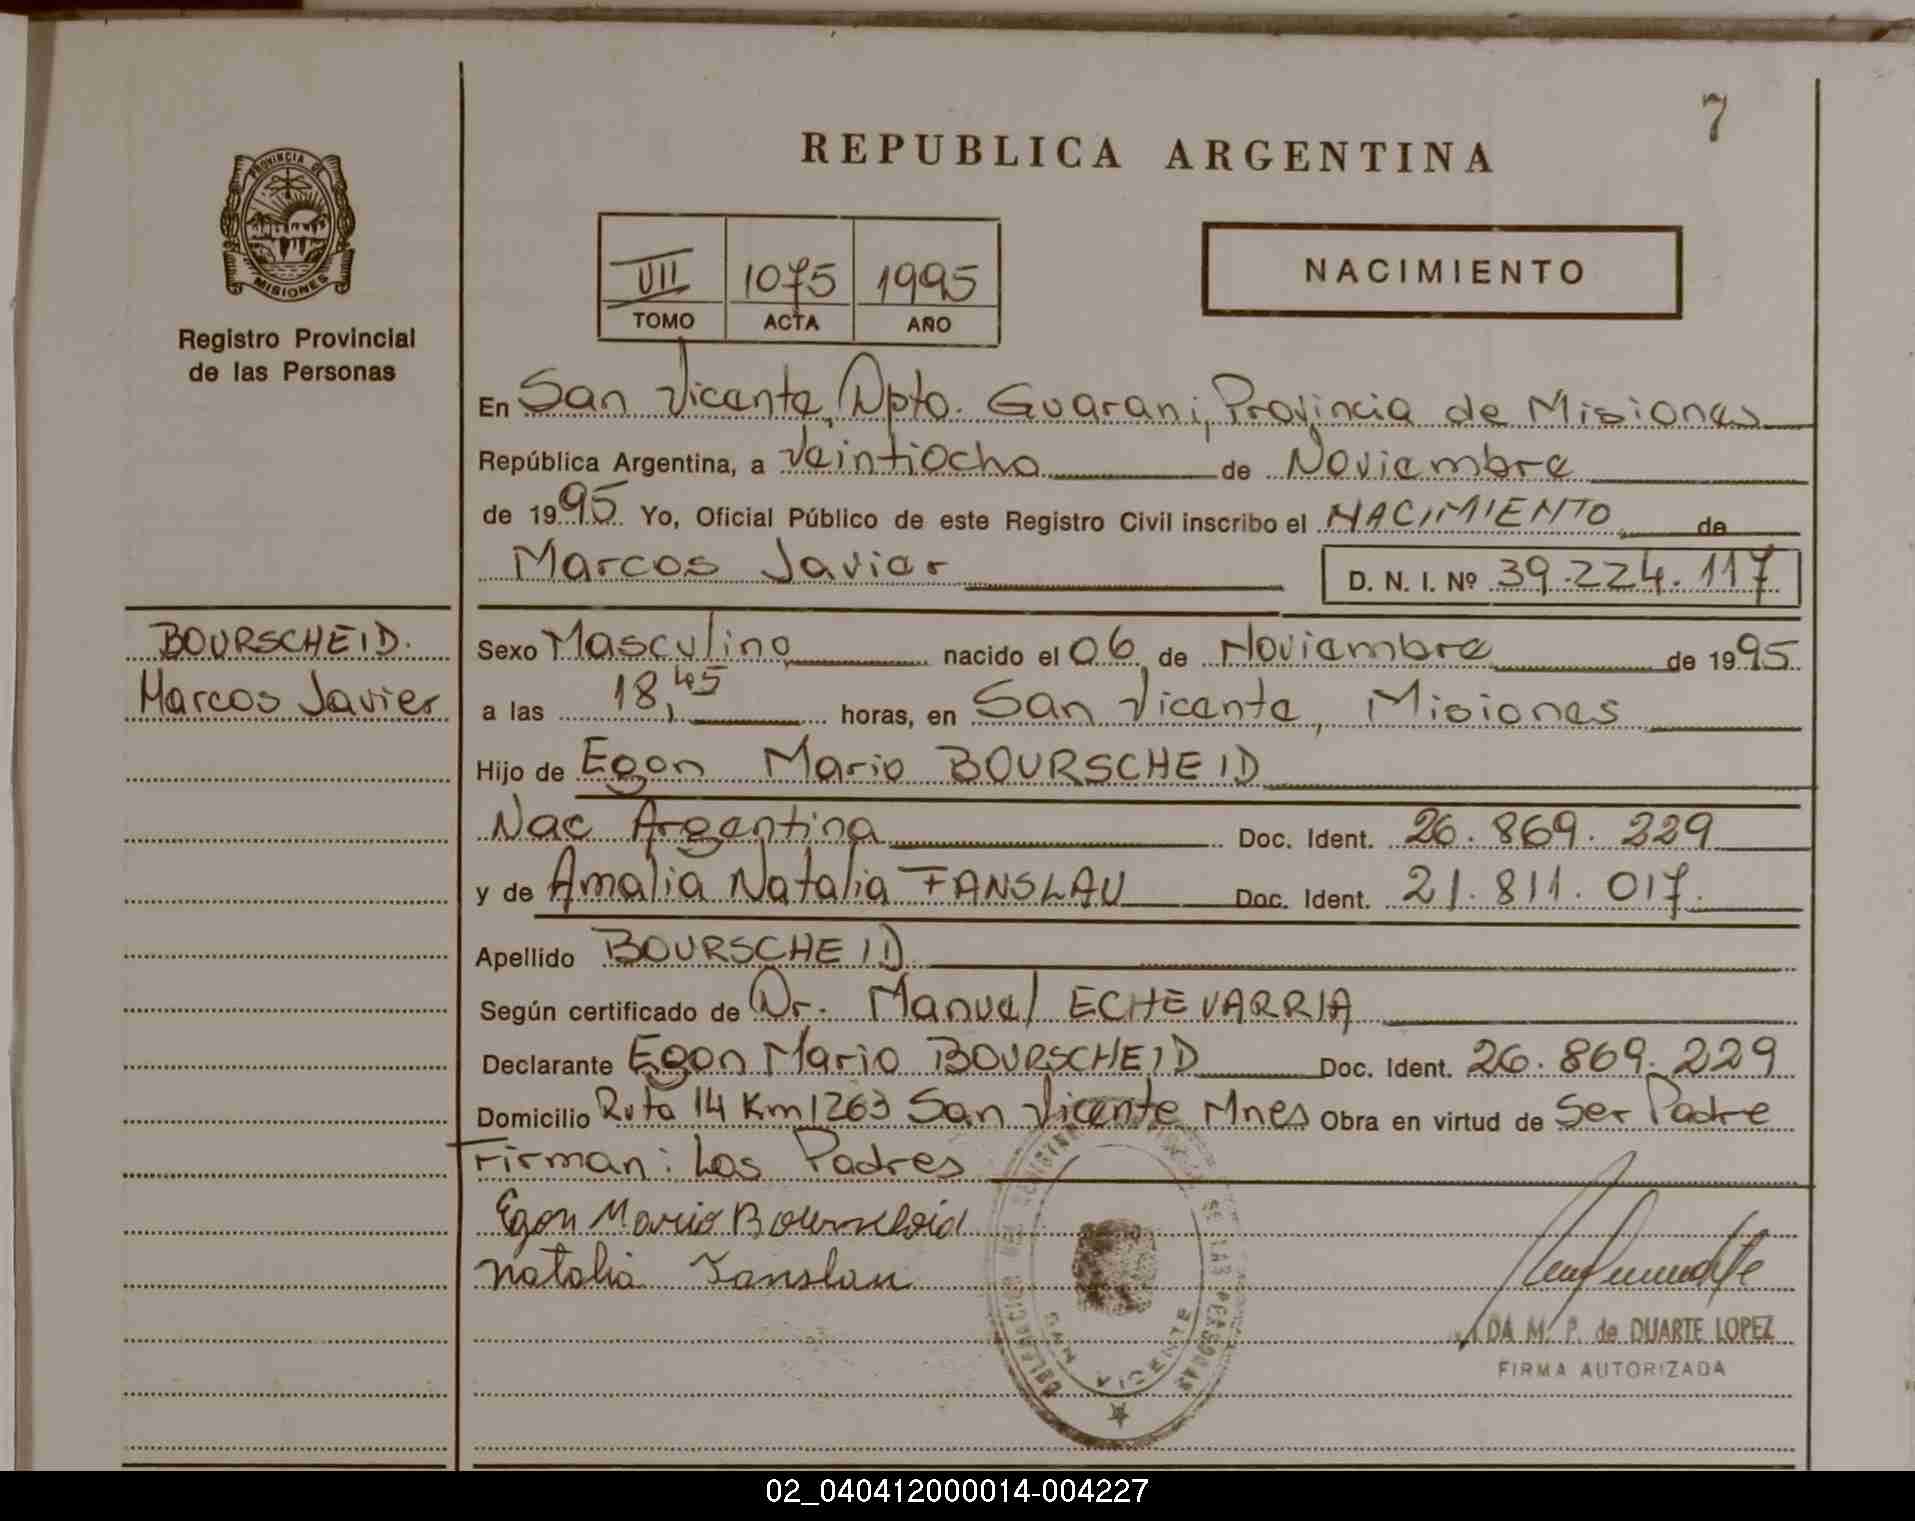 7
REPUBLICA ARGENTINA
PROVINCIA DE
MISIONES
Registro Provincial
de las Personas
VII 1075 1995
TOMO ACTA AÑO
NACIMIENTO
En San Vicente, Dpto. Guarani, Provincia de Misiones
República Argentina, a veintiocho de Noviembre
de 1995 Yo, Oficial Público de este Registro Civil inscribo el NACIMIENTO de
Marcos Javier D. N. I. Nº 39.224.117
BOURSCHEID.
Marcos Javier
Sexo Masculino nacido el 06 de Noviembre de 1995
a las 18,45 horas, en San Vicente, Misiones
Hijo de Egon Mario BOURSCHEID
Nac Argentina Doc. Ident. 26.869.229
y de Amalia Natalia FANSLAU Doc. Ident. 21.811.017.
Apellido BOURSCHEID
Según certificado de Dr. Manuel ECHEVARRIA
Declarante Egon Mario BOURSCHEID Doc. Ident. 26.869.229
Domicilio Ruta 14 Km 1263 San Vicente Mnes Obra en virtud de Ser Padre
Firman: Los Padres
Egon Mario Bourscheid
Natalia Fanslau
DE LAS PERSONAS
SAN VICENTE
DA M. P. de DUARTE LOPEZ
FIRMA AUTORIZADA
02_040412000014-004227